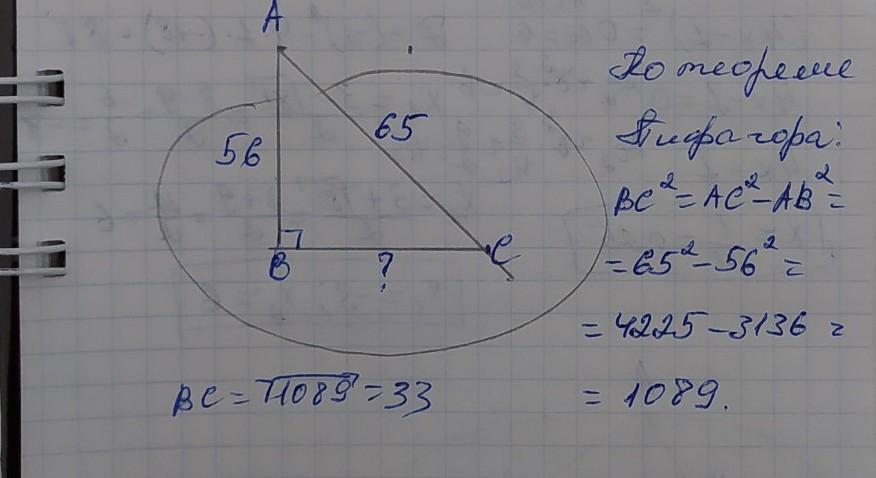 A
56
65
B
?
C
По теореме
Пифагора:
BC²=AC²-AB²=
=65²-56²=
=4225-3136=
=1089.
BC=√1089=33